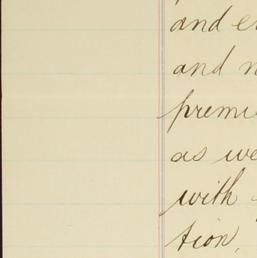 and e
and n
premi
as we
with
tion,